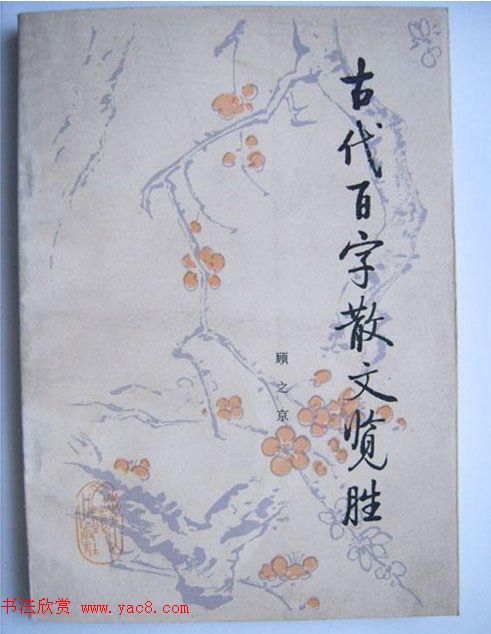 古代百字散文览胜
顾之京
书法欣赏 www.yac8.com